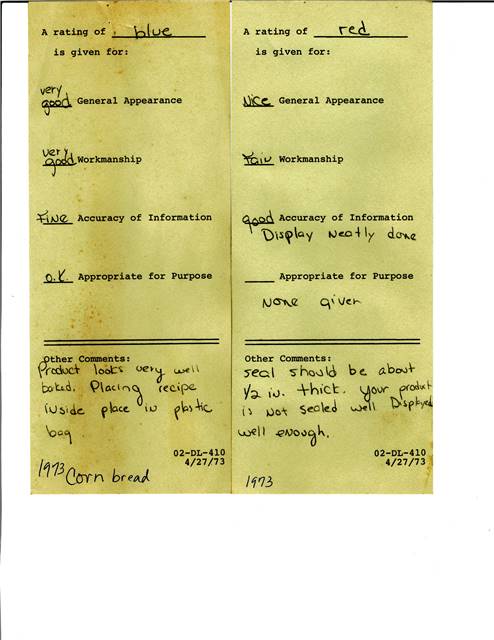 A rating of blue
is given for:
very
good General Appearance
very
good Workmanship
Fine Accuracy of Information
O.K. Appropriate for Purpose
Other Comments:
Product looks very well
baked. Placing recipe
inside place in plastic
bag
02-DL-410
4/27/73
1973 Corn bread
A rating of red
is given for:
Nice General Appearance
Fair Workmanship
good Accuracy of Information
Display Neatly done
Appropriate for Purpose
None given
Other Comments:
seal should be about
1/2 in. thick. your product
is Not sealed well Displayed
well enough.
02-DL-410
4/27/73
1973